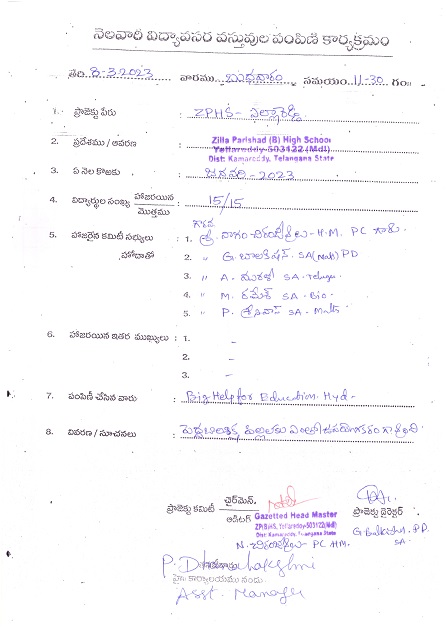 నెలవారీ విద్యావసర వస్తువుల పంపిణి కార్యక్రమం
తేది 8-3-2023 వారము బుధవారం సమయం 11-30 గం॥
1. ప్రాజెక్టు పేరు : ZPHS - ఎల్లారెడ్డి
2. ప్రదేశము / ఆవరణ : Zilla Parishad (B) High School
Yellareddy-503122 (Mdl)
Dist: Kamareddy, Telangana State
3. ఏ నెల కొఱకు : జనవరి - 2023
4. విద్యార్థుల సంఖ్య హాజరయిన / మొత్తము : 15/15
5. హాజరైన కమిటీ సభ్యులు : 1. శ్రీ H.M. PC గారు
హోదాతో 2. " G. బాలకిషన్ SA PD
3. " A. మురళి SA-Telugu
4. " M. రమేశ్ SA - Bio
5. " P. శ్రీనివాస్ SA - Maths
6. హాజరయిన ఇతర ముఖ్యులు : 1. -
2. -
3. -
7. పంపిణీ చేసిన వారు : Big Help for Education. Hyd -
8. వివరణ / సూచనలు : పిల్లలకు
ప్రాజెక్టు కమిటీ చైర్మెన్.
ఆడిటర్ Gazetted Head Master
ZP(B)HS, Yellareddy-503122(Mdl)
Dist: Kamareddy, Telangana State
ప్రాజెక్టు డైరెక్టర్
G. Balkishan P.D.
SA
PC HM.
హై॥ కార్యాలయము నందు
Asst. Manager